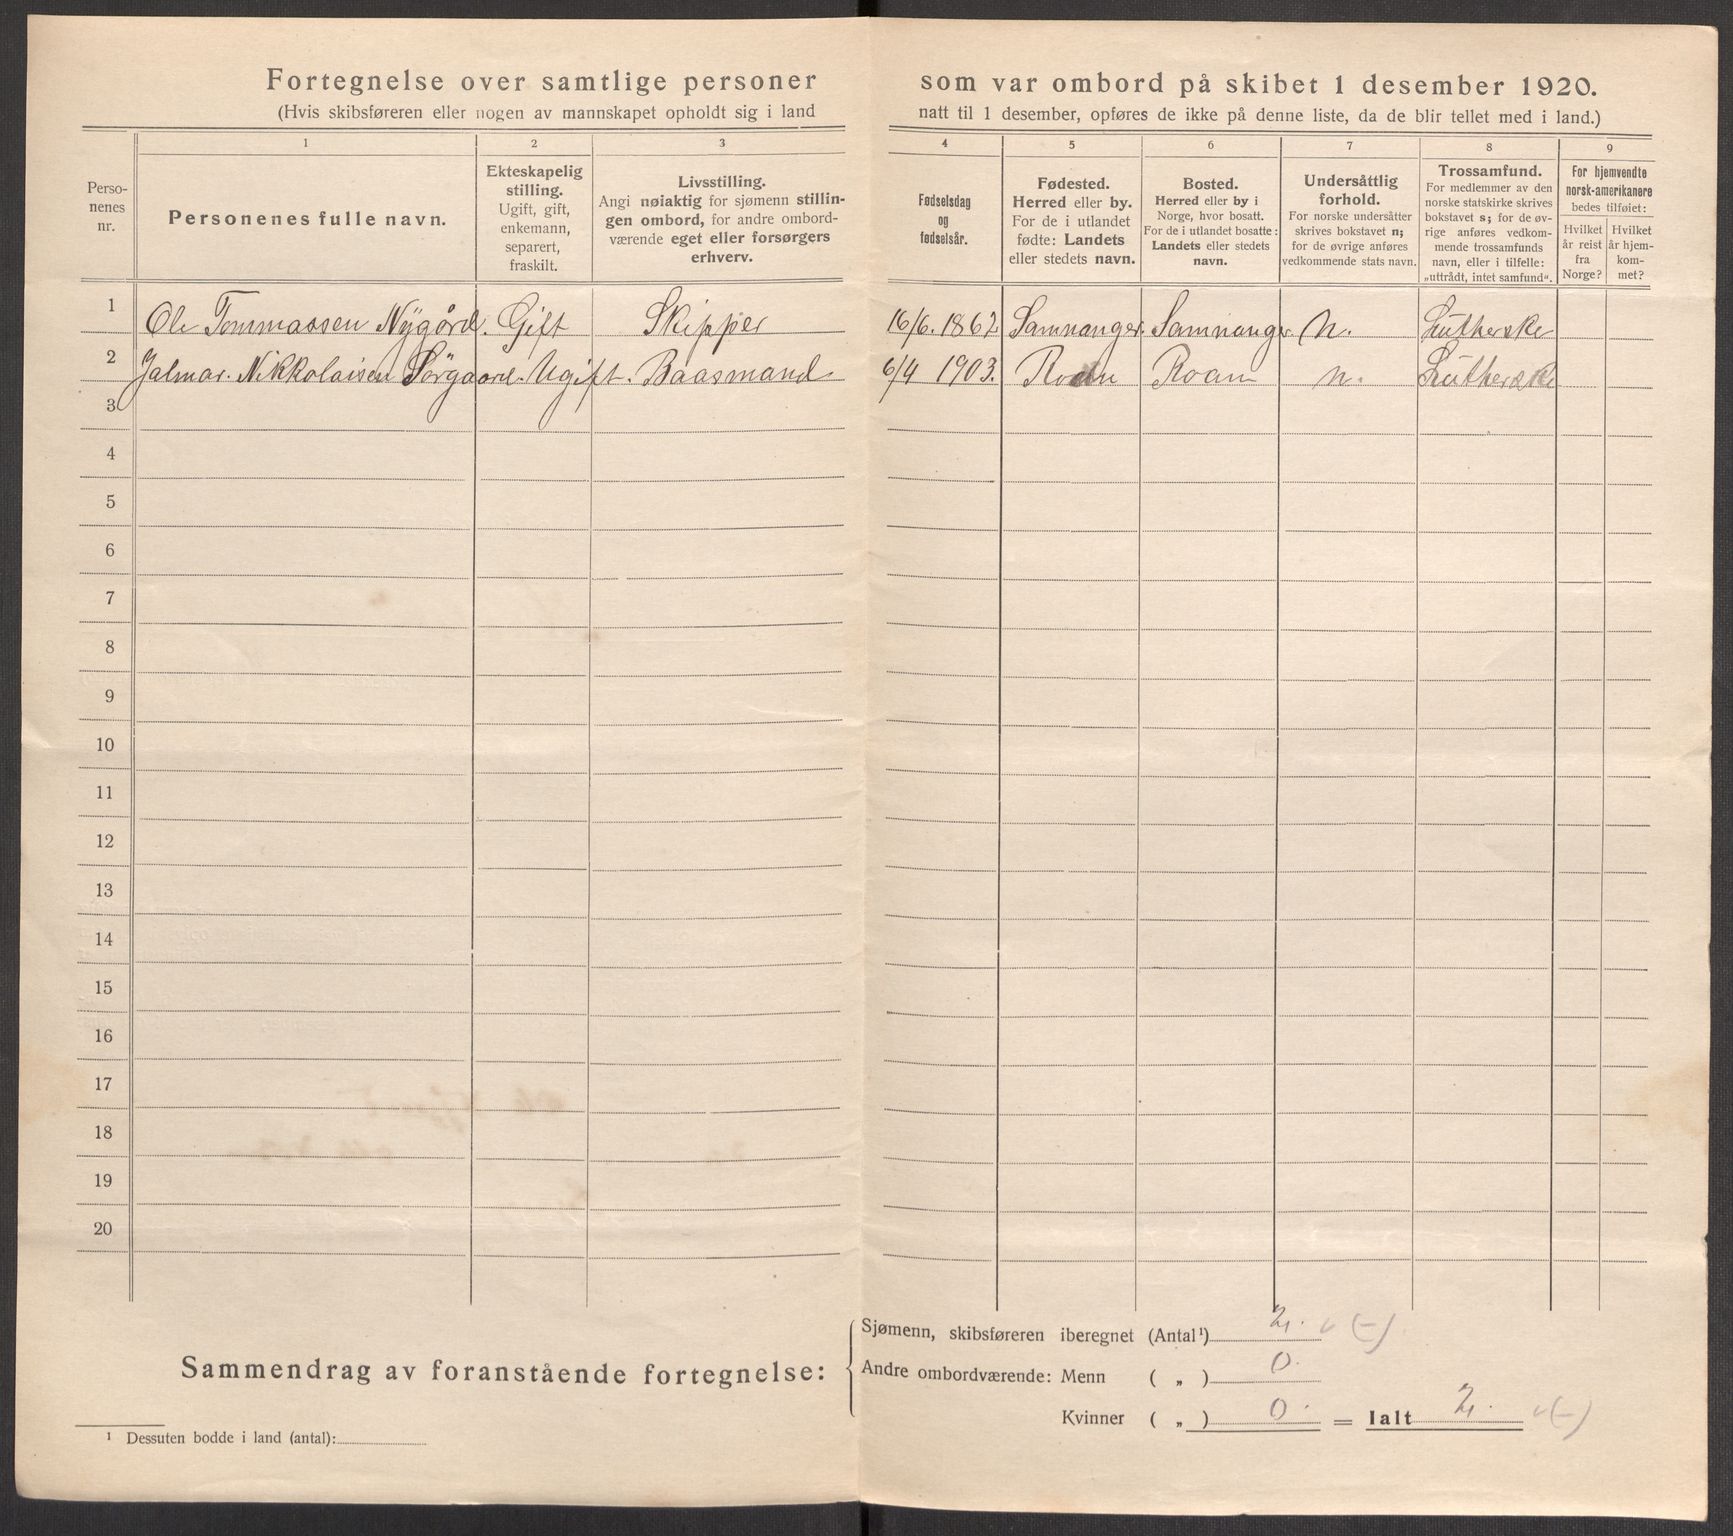 Fortegnelse over samtlige personer som var ombord på skibet 1 desember 1920.
(Hvis skibsføreren eller nogen av mannskapet opholdt sig i land natt til 1 desember, opføres de ikke på denne liste, da de blir tellet med i land.)
Perso-
nenes
nr.
1
Personenes fulle navn.
2
Ekteskapelig
stilling.
Ugift, gift,
enkemann,
separert,
fraskilt.
3
Livsstilling.
Angi nøiaktig for sjømenn stillin-
gen ombord, for andre ombord-
værende eget eller forsørgers
erhverv.
4
Fødselsdag
og
fødselsår.
5
Fødested.
Herred eller by.
For de i utlandet
fødte: Landets
eller stedets navn.
6
Bosted.
Herred eller by i
Norge, hvor bosatt.
For de i utlandet bosatte:
Landets eller stedets
navn.
7
Undersåttlig
forhold.
For norske undersåtter
skrives bokstavet n;
for de øvrige anføres
vedkommende stats navn.
8
Trossamfund.
For medlemmer av den
norske statskirke skrives
bokstavet s; for de øv-
rige anføres vedkom-
mende trossamfunds
navn, eller i tilfelle:
„uttrådt, intet samfund“.
9
For hjemvendte
norsk-amerikanere
bedes tilføiet:
Hvilket
år reist
fra
Norge?
Hvilket
år hjem-
kom-
met?
1 Ole Tommassen Nygård. Gift Skipper 16/6. 1862 Samnanger. Samnanger. n. Lutherske
2 Jalmar. Nikkolaisen Sörgaard. Ugift. Baasmand 6/4 1903. Roan Roan n. Lutherske
3
4
5
6
7
8
9
10
11
12
13
14
15
16
17
18
19
20
Sammendrag av foranstående fortegnelse:
Sjømenn, skibsføreren iberegnet (Antal¹) 2. v (-)
Andre ombordværende: Menn ( „ ) 0.
Kvinner ( „ ) 0. = Ialt 2. v (-)
¹ Dessuten bodde i land (antal):